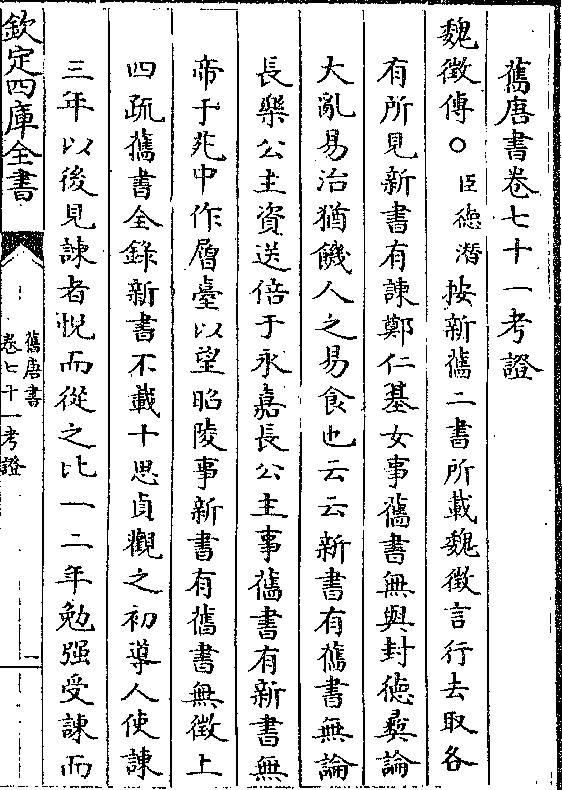 舊唐書卷七十一考證
魏徵傳○臣德潛按新舊二書所載魏徵言行去取各
有所見新書有諫鄭仁基女事舊書無與封德彝論
大亂易治猶饑人之易食也云云新書有舊書無論
長樂公主資送倍于永嘉長公主事舊書有新書無
帝于苑中作層臺以望昭陵事新書有舊書無徵上
四疏舊書全錄新書不載十思貞觀之初導人使諫
三年以後見諫者悅而從之比一二年勉强受諫而
欽定四庫全書
舊唐書
卷七十一考證
一